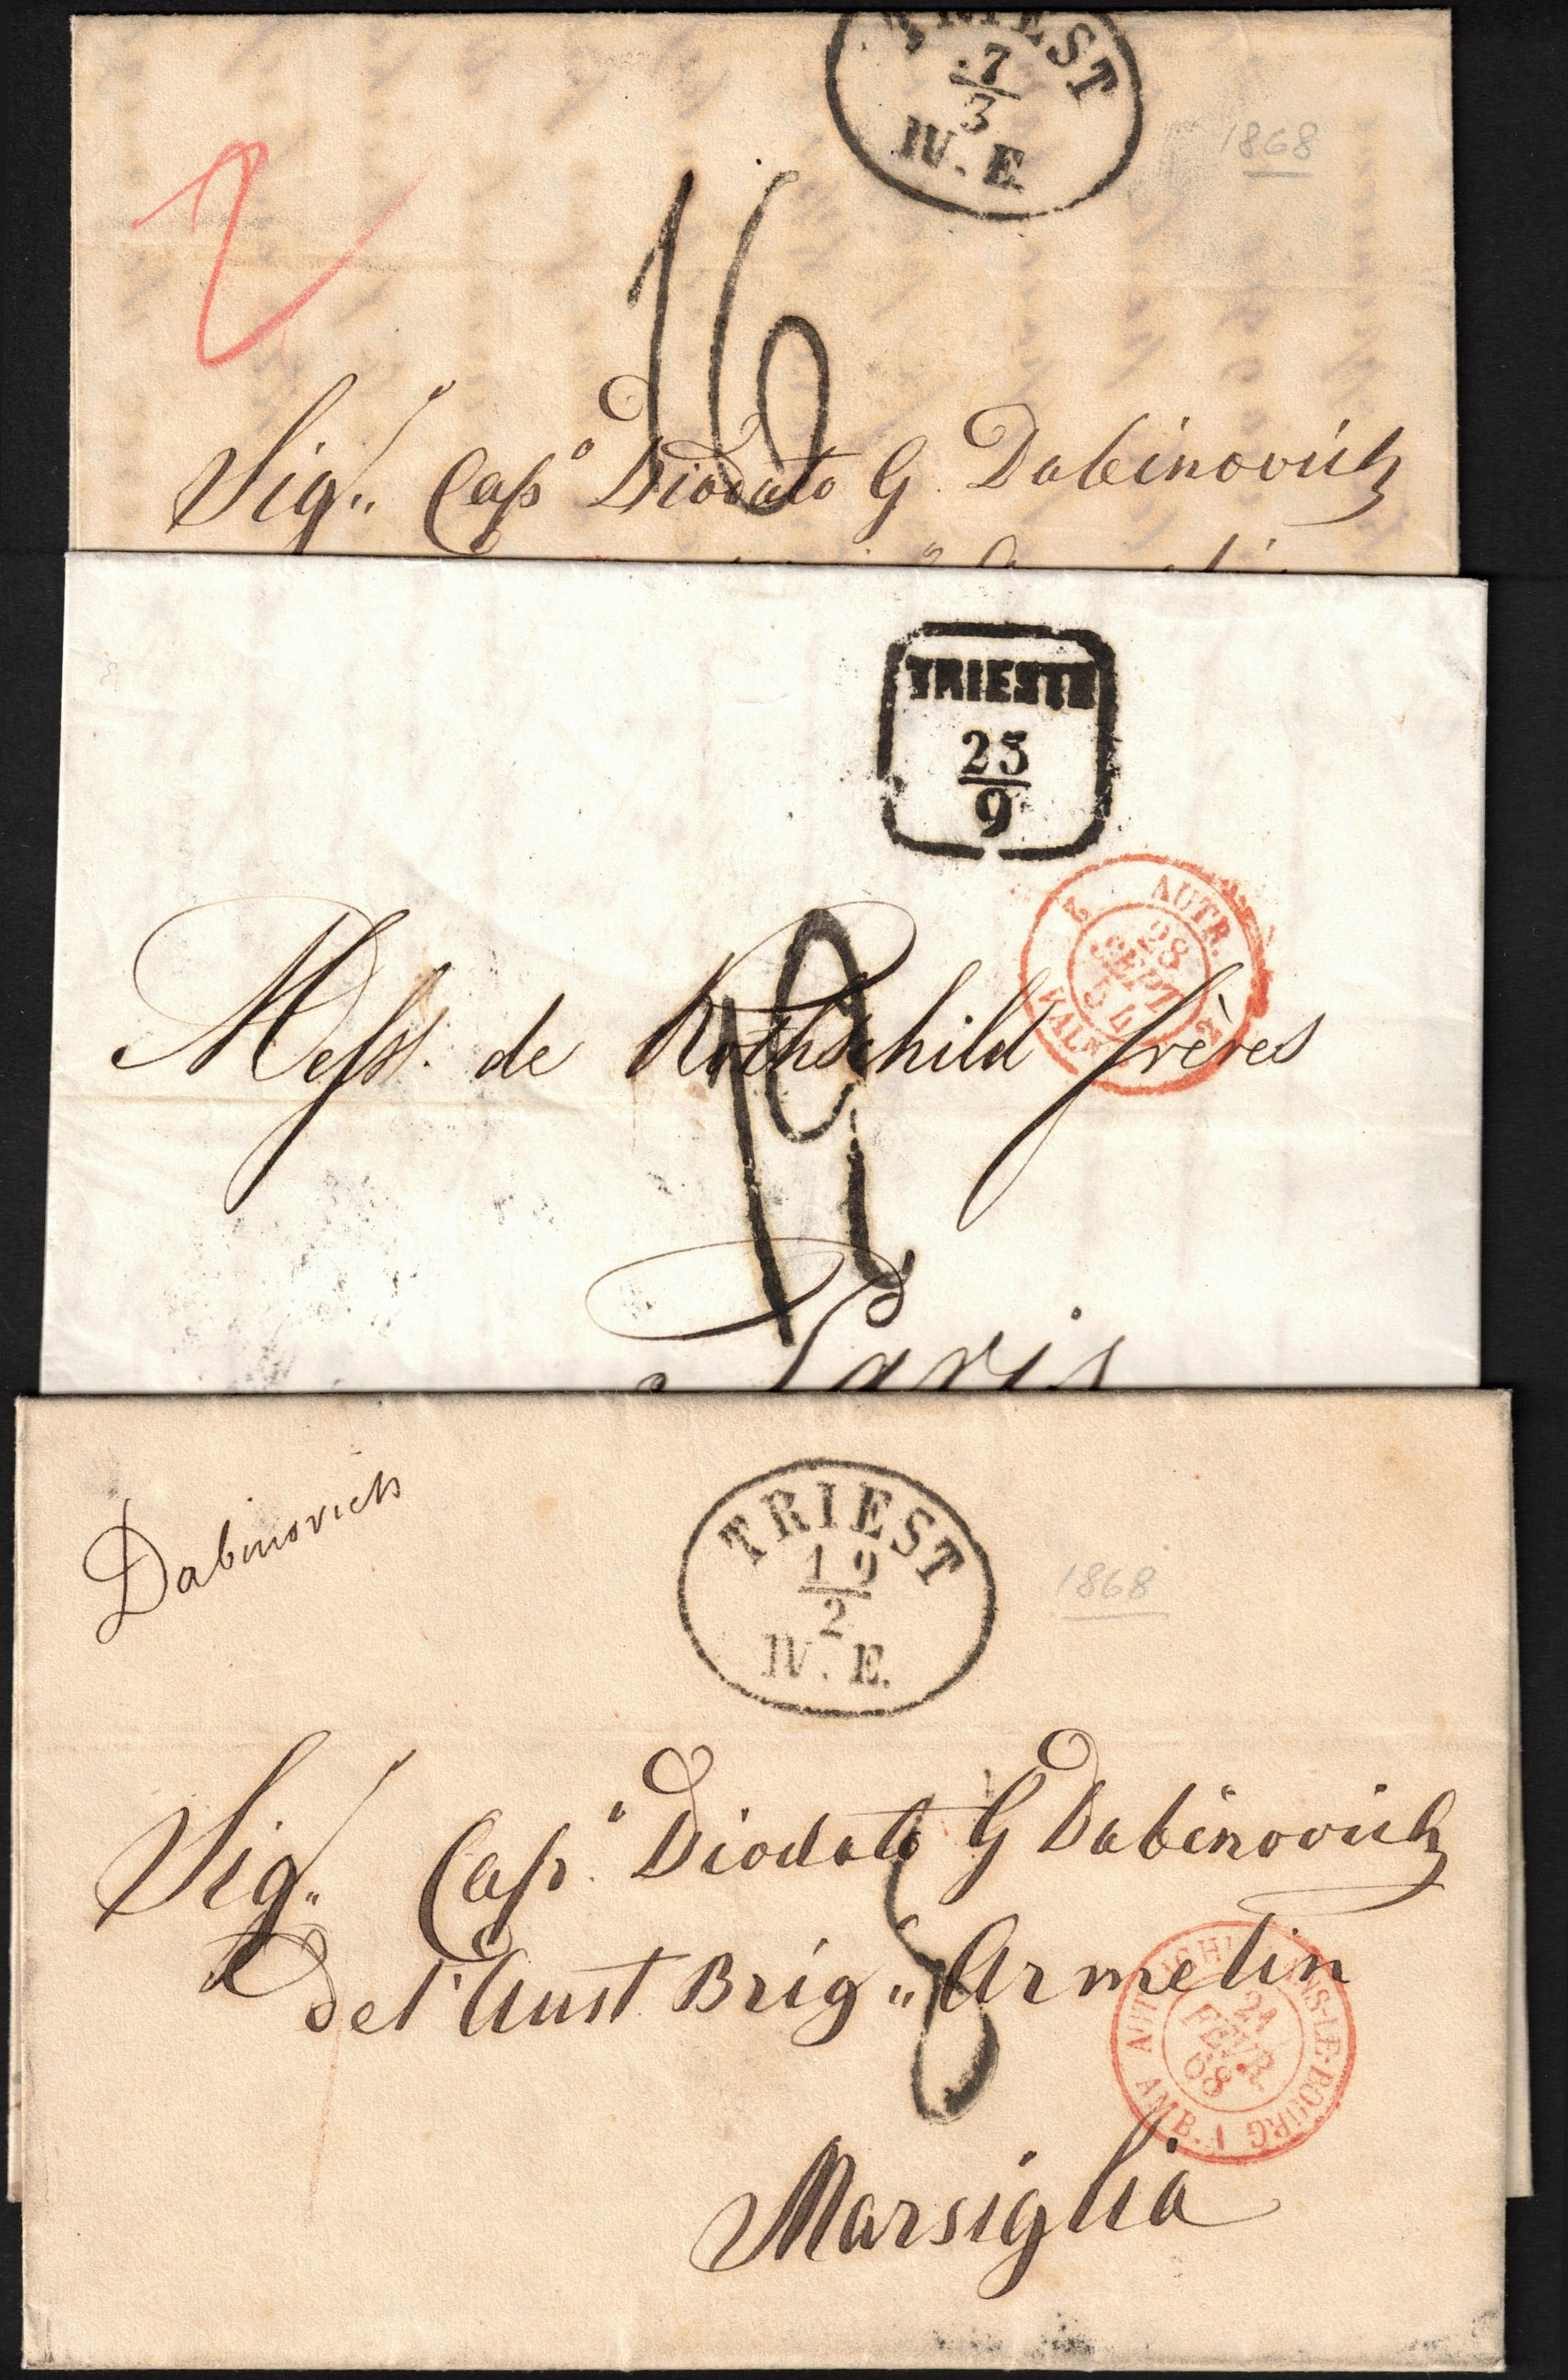 TRIEST
7
3
IV. E.
1868
2
16
Sig.r Cap.o Diodato G. Dabinovich
TRIESTE
25
9
2 AUTR. 2
28
SEPT.
54
VAL
Mess. de Rothschild frères
12
Paris
Dabinovich
TRIEST
19
2
IV. E.
1868
Sig.r Cap.o Diodato G Dabinovich
8
del'Aust Brig.o Armelin
21
FEVR.
68
AMB. 
Marsiglia